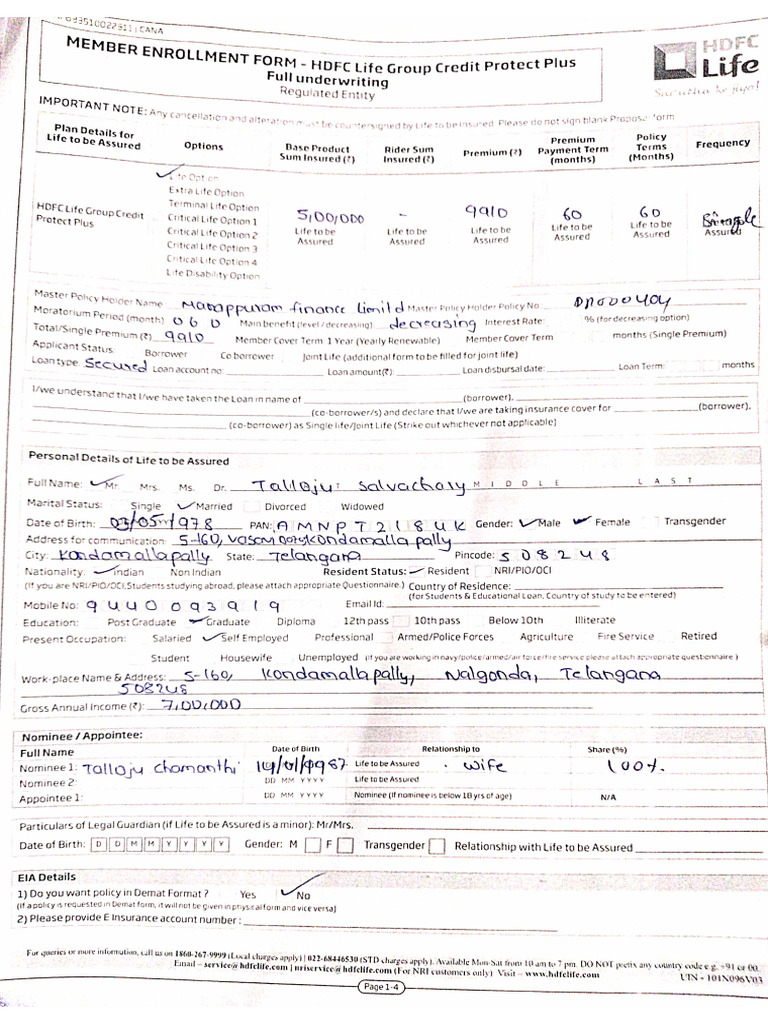 693510022911 | CANA
MEMBER ENROLLMENT FORM - HDFC Life Group Credit Protect Plus
Full underwriting
Regulated Entity
HDFC Life
Sar utha ke jiyo!
IMPORTANT NOTE: Any cancellation and alteration must be countersigned by Life to be Insured. Please do not sign blank Proposal form
Plan Details for Life to be Assured Options Base Product Sum Insured (₹) Rider Sum Insured (₹) Premium (₹) Premium Payment Term (months) Policy Terms (Months) Frequency
HDFC Life Group Credit Protect Plus
✓ Life Option
Extra Life Option
Terminal Life Option
Critical Life Option 1
Critical Life Option 2
Critical Life Option 3
Critical Life Option 4
Life Disability Option
5,00,000 - 9910 60 60
Life to be Assured Life to be Assured Life to be Assured Life to be Assured Life to be Assured Assured
Master Policy Holder Name Manappuram finance limitd Master Policy Holder Policy No
Moratorium Period (month) 060 Main benefit (level / decreasing) decreasing Interest Rate: % (for decreasing option)
Total/Single Premium (₹) 9910 Member Cover Term 1 Year (Yearly Renewable) Member Cover Term months (Single Premium)
Applicant Status: Borrower Co borrower Joint Life (additional form to be filled for joint life)
Loan type: Secured Loan account no: Loan amount(₹): Loan disbursal date: Loan Term: months
I/we understand that I/we have taken the Loan in name of (borrower),
(co-borrower/s) and declare that I/we are taking insurance cover for (borrower),
(co-borrower) as Single life/Joint Life (Strike out whichever not applicable)
Personal Details of Life to be Assured
Full Name: ✓ Mr. Mrs. Ms. Dr. Talloju Salvachary MIDDLE LAST
Marital Status: Single ✓ Married Divorced Widowed
Date of Birth: 03/05/1978 PAN: AMNPT2184K Gender: ✓ Male ✓ Female Transgender
Address for communication: 5-160, kondamallapally
City: Kondamallapally State: Telangana Pincode: 508248
Nationality: ✓ Indian Non Indian Resident Status: ✓ Resident NRI/PIO/OCI
(If you are NRI/PIO/OCI, Students studying abroad, please attach appropriate Questionnaire.) Country of Residence:
(for Students & Educational Loan, Country of study to be entered)
Mobile No: 9440093919 Email Id:
Education: Post Graduate ✓ Graduate Diploma 12th pass 10th pass Below 10th Illiterate
Present Occupation: Salaried ✓ Self Employed Professional Armed/Police Forces Agriculture Fire Service Retired
Student Housewife Unemployed (If you are working in navy/police/armed/air force/fire service please attach appropriate questionnaire.)
Work-place Name & Address: 5-160, Kondamallapally, Nalgonda, Telangana
508248
Gross Annual Income (₹): 7,00,000
Nominee / Appointee:
Full Name Date of Birth Relationship to Share (%)
Nominee 1: Talloju Chamanthi 14/01/1987 Life to be Assured wife 100%.
Nominee 2: DD MM YYYY Life to be Assured
Appointee 1: DD MM YYYY Nominee (If nominee is below 18 yrs of age) N/A
Particulars of Legal Guardian (if Life to be Assured is a minor): Mr/Mrs.
Date of Birth: D D M M Y Y Y Y Gender: M F Transgender Relationship with Life to be Assured
EIA Details
1) Do you want policy in Demat Format ? Yes ✓ No
(If a policy is requested in Demat form, it will not be given in physical form and vice versa)
2) Please provide E Insurance account number :
For queries or more information, call us on 1860-267-9999 (Local charges apply) | 022-68446530 (STD charges apply). Available Mon-Sat from 10 am to 7 pm. DO NOT prefix any country code e.g. +91 or 00.
Email – service@hdfclife.com | nriservice@hdfclife.com (For NRI customers only) Visit – www.hdfclife.com
UIN - 101N096V03
Page 1-4